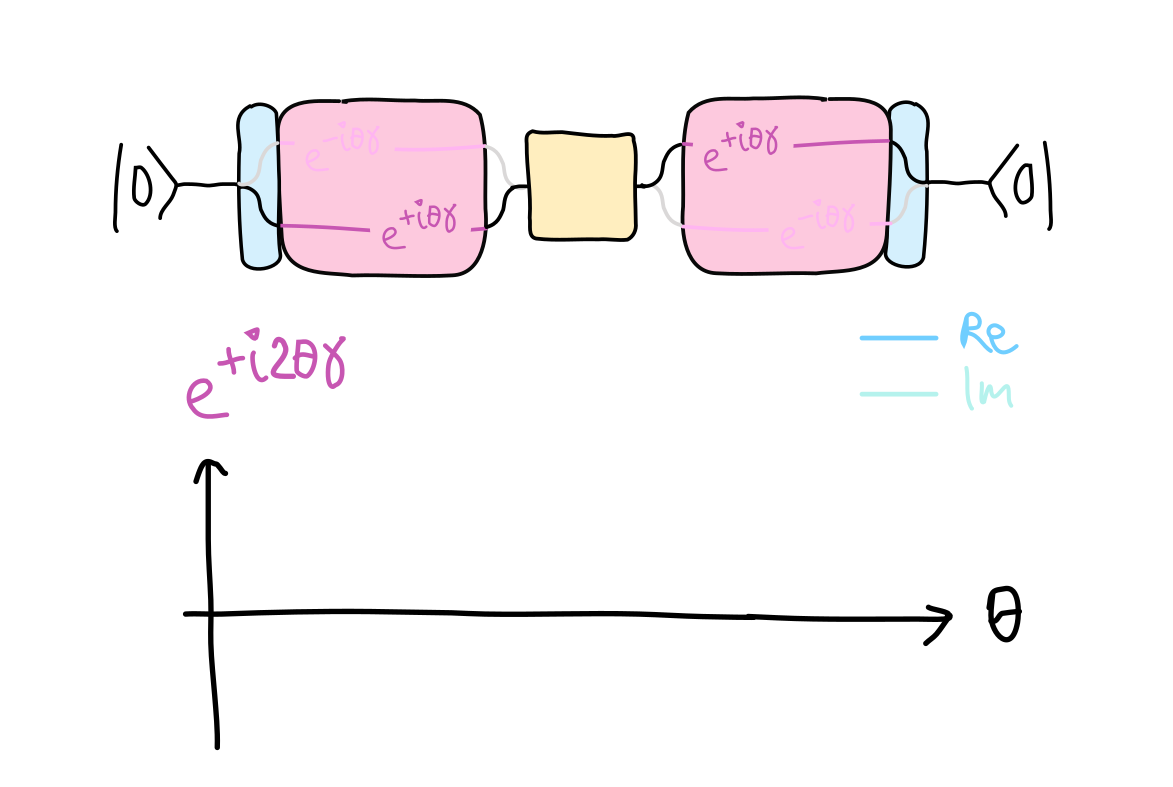 |0⟩ e^{-iθγ} e^{+iθγ} ⟨0|
e^{+iθγ} e^{-iθγ}
e^{+i2θγ}
Re
Im
θ